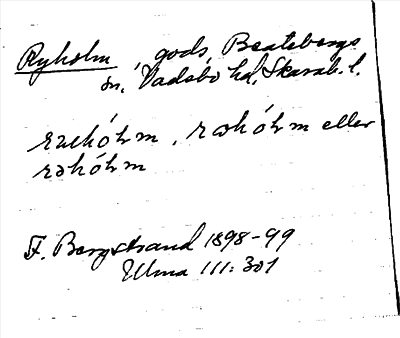 Ryholm, gods, Beatebergs
sn, Vadsbo hd, Skarab. l.
rəhólm eller
rəhólm
F. Bergstrand 1898-99
Ulma 111:301